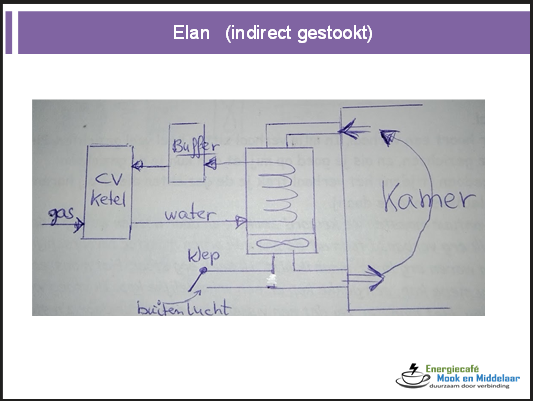 Elan (indirect gestookt)
Buffer
CV
ketel
gas
water
Kamer
klep
buitenlucht
Energiecafé
Mook en Middelaar
duurzaam door verbinding